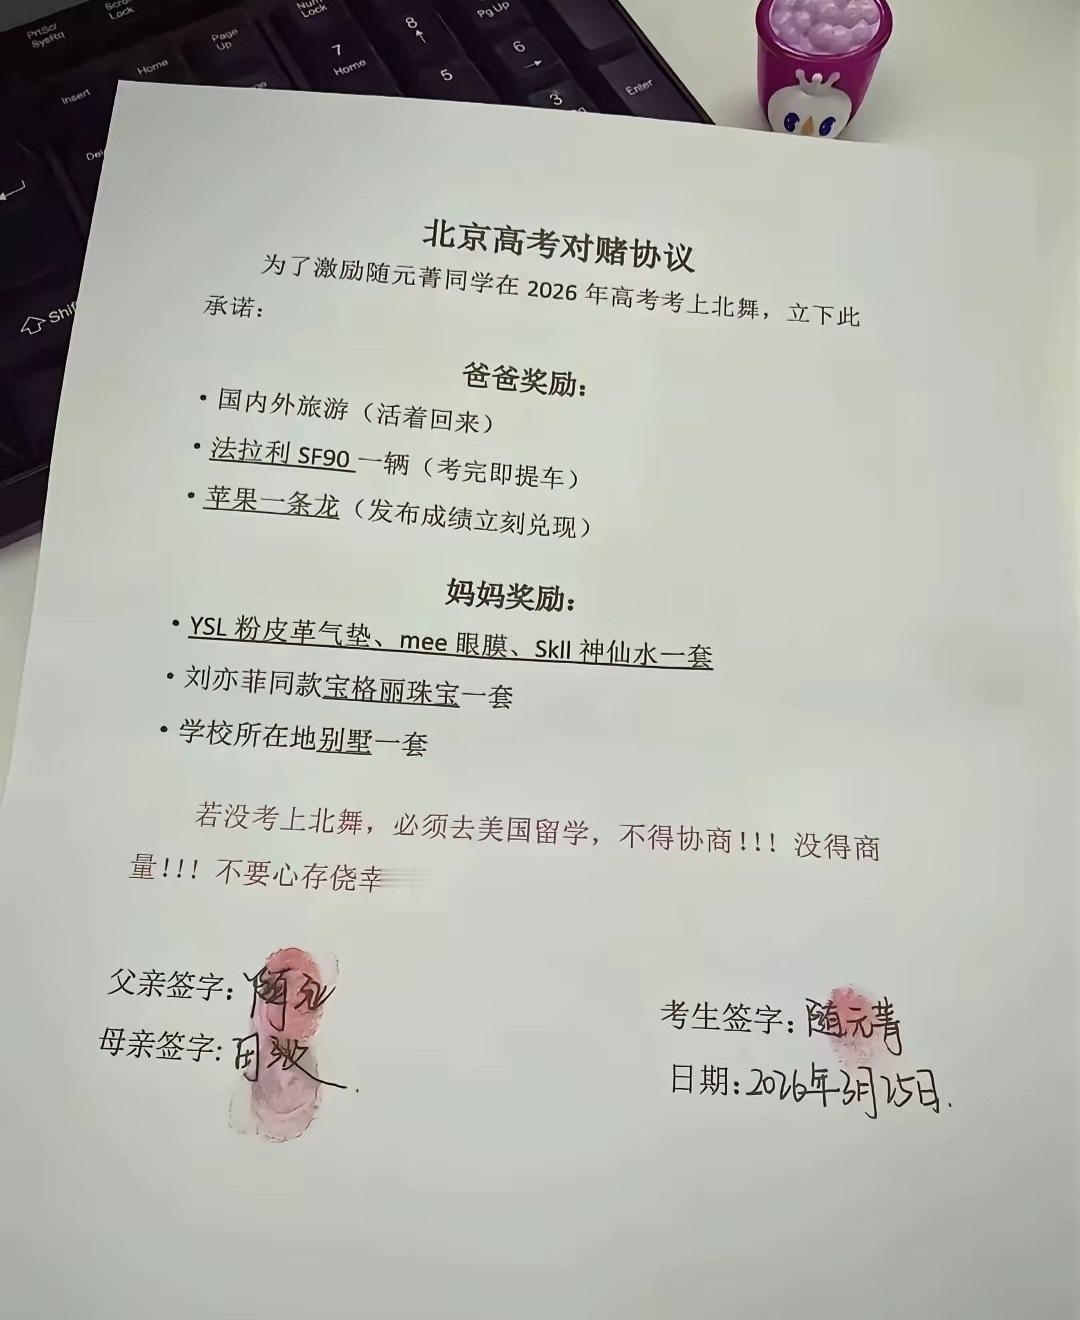 PrtScr
SysRq
Scro
Lock
Num
Lock
Page
Up
Home
Insert
7
Home
8
5
Pg Up
6
3
Enter
Shif
北京高考对赌协议
为了激励随元菁同学在 2026 年高考考上北舞，立下此
承诺：
爸爸奖励：
• 国内外旅游（活着回来）
• 法拉利 SF90 一辆（考完即提车）
• 苹果一条龙（发布成绩立刻兑现）
妈妈奖励：
• YSL 粉皮革气垫、mee 眼膜、SkII 神仙水一套
• 刘亦菲同款宝格丽珠宝一套
• 学校所在地别墅一套
若没考上北舞，必须去美国留学，不得协商！！！没得商
量！！！不要心存侥幸
父亲签字：随
母亲签字:
考生签字：随元菁
日期：2026年3月25日.